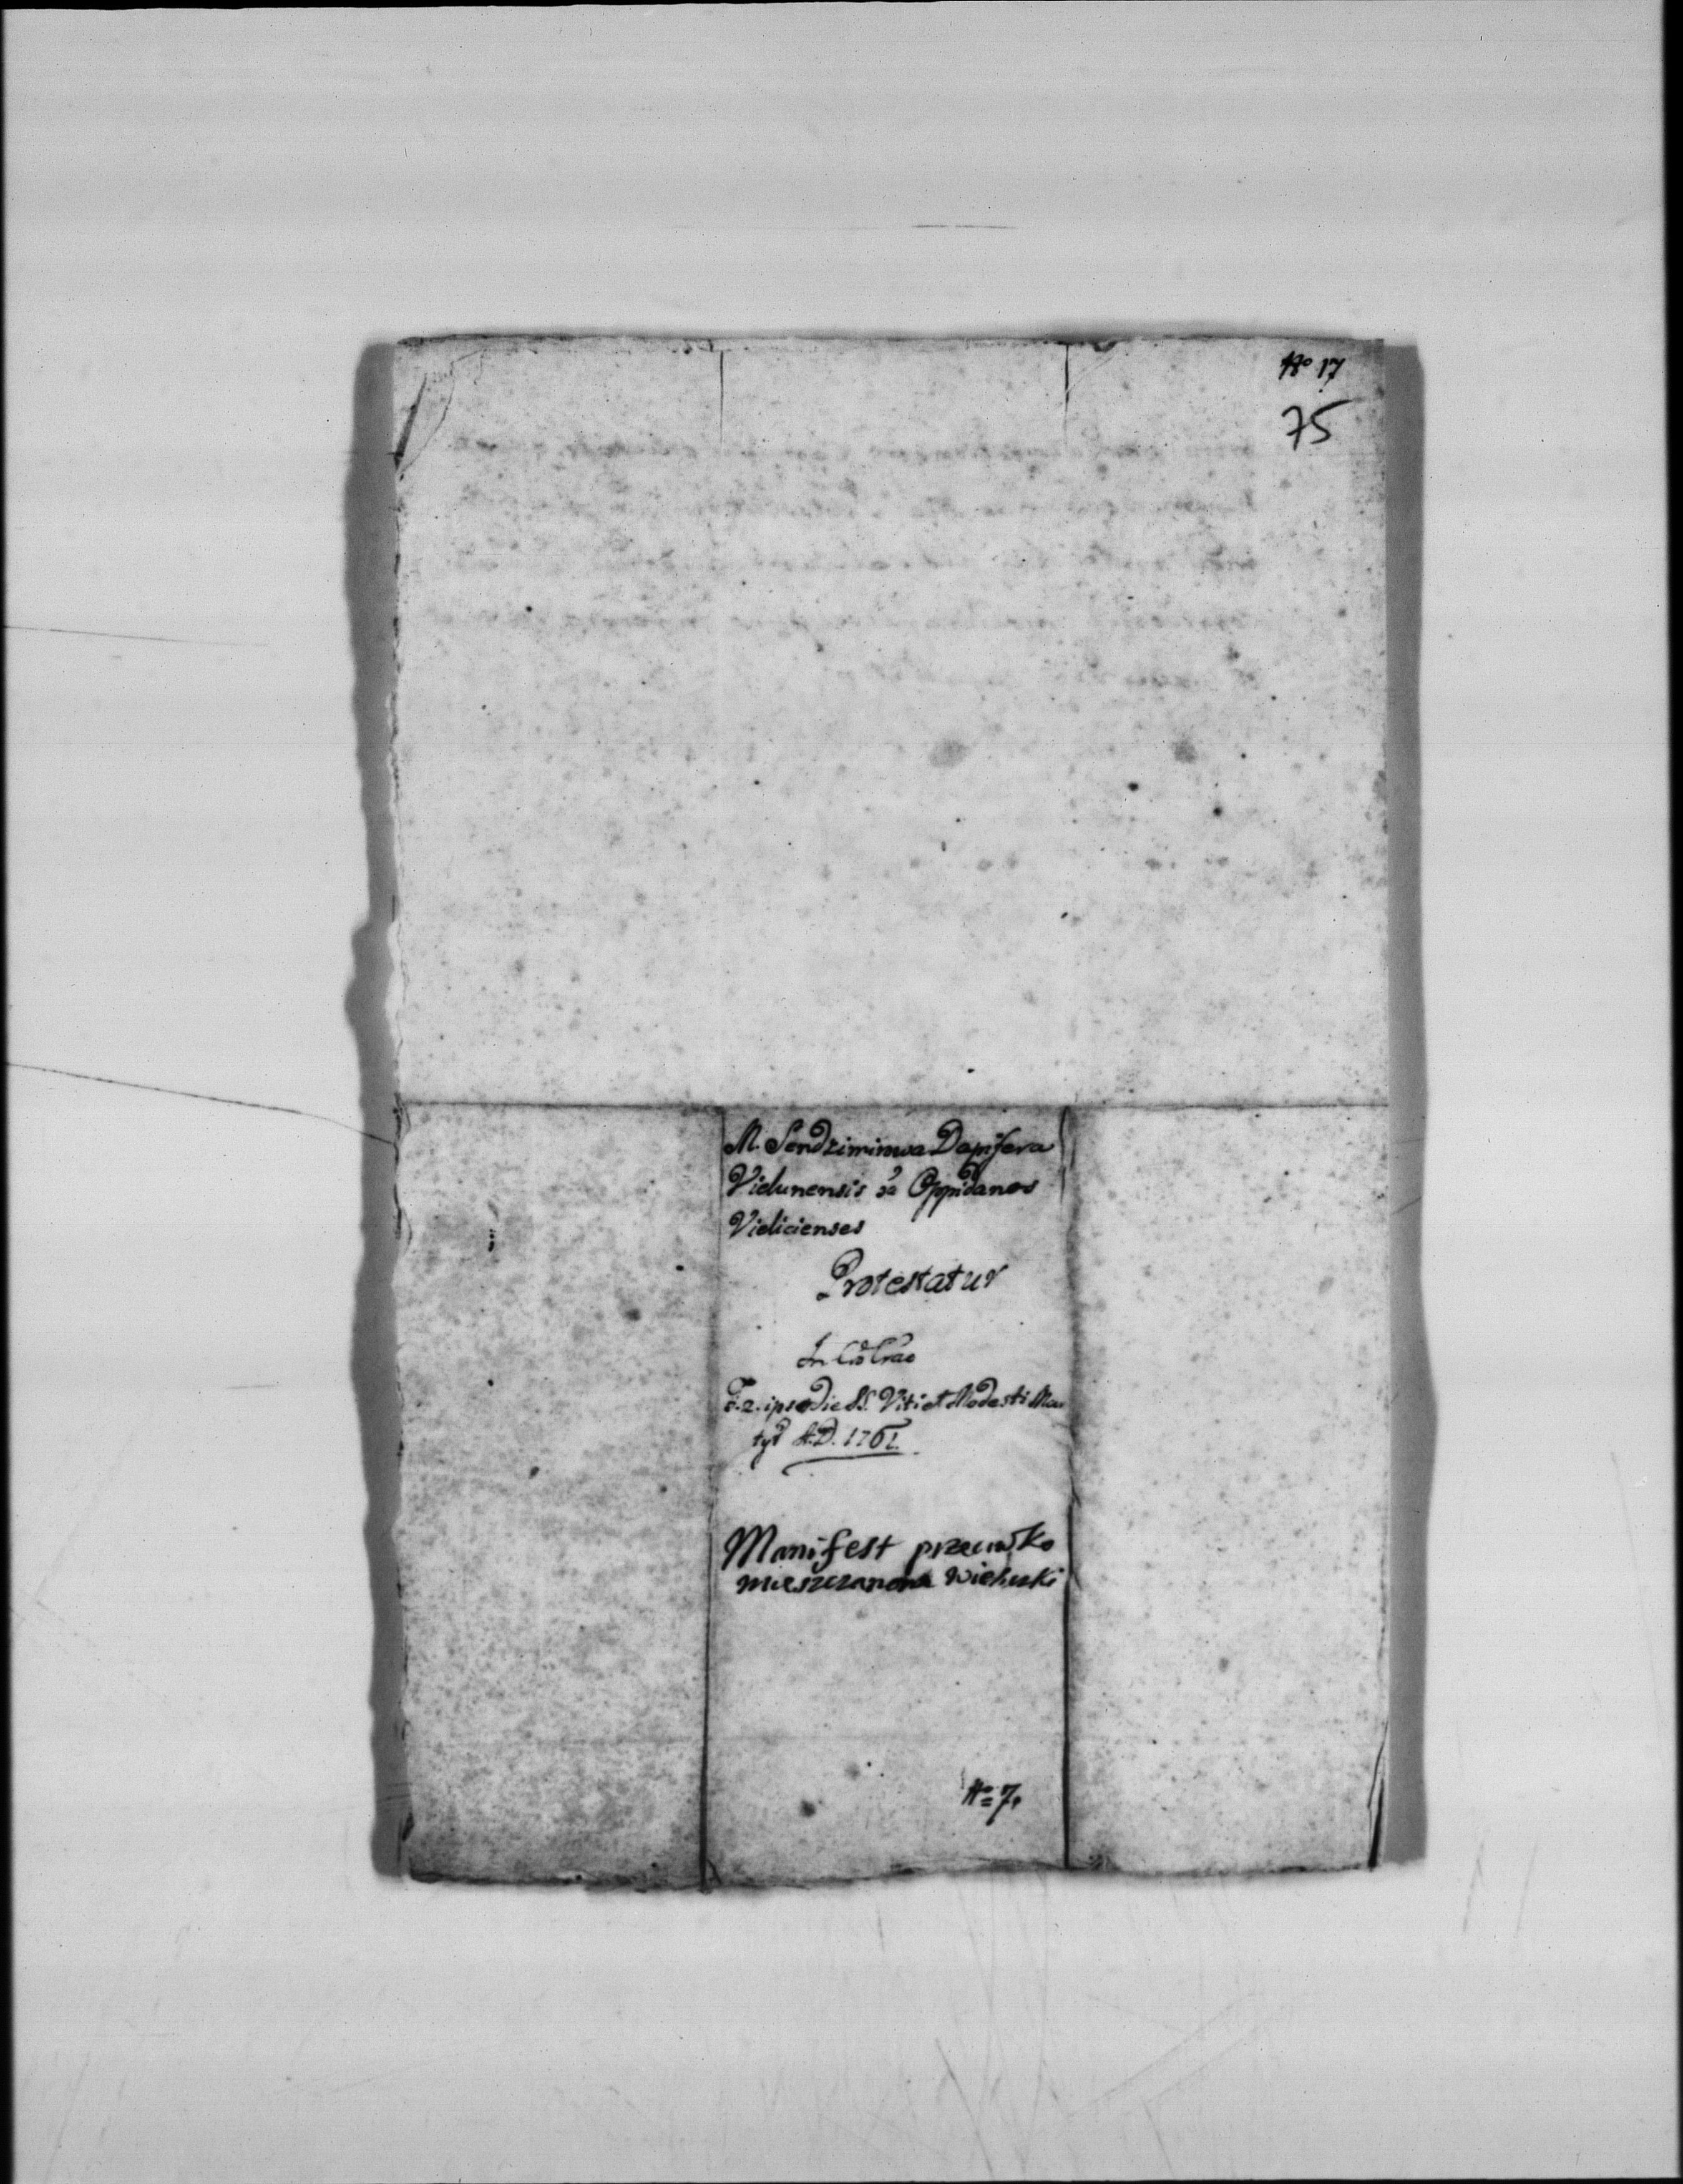 No 17
75
M. Sendzimirowa Dapifera
Vielunensis Oppidanos
Vielicienses
Protestatur
In
F. 2. ipso Die SS. Viti et Modesti Mar
tyr A. D. 1761.
Manifest przeciwko
mieszczanom
No 7.